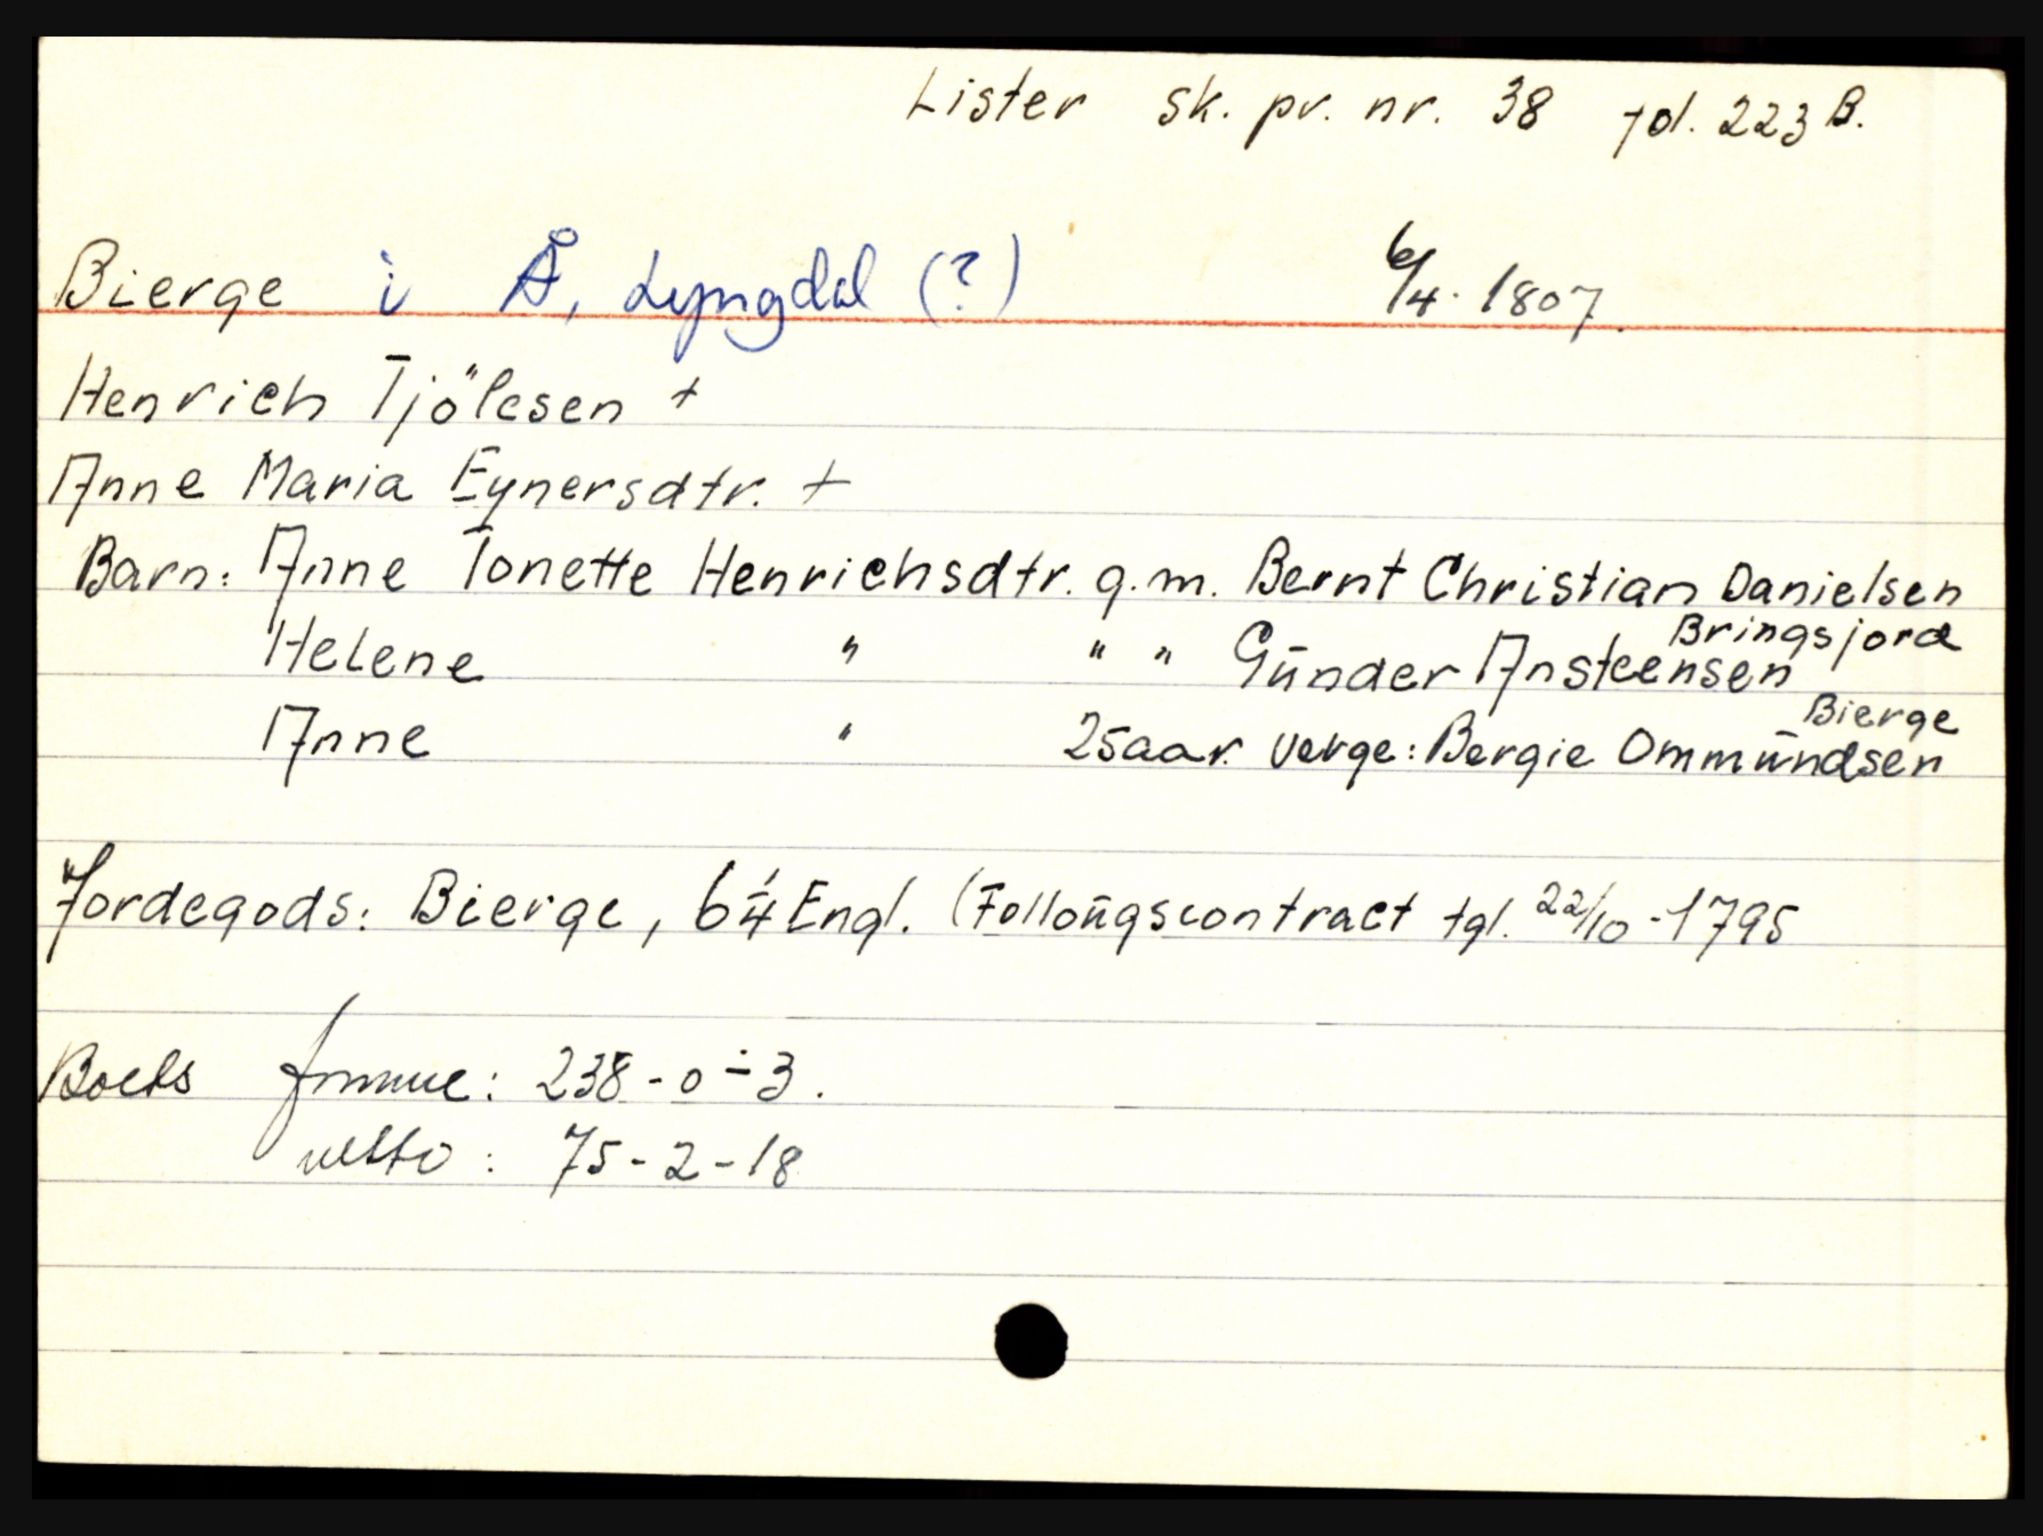 Lister sk. pr. nr. 38 fol. 223 B.
Bierge i Å, Lyngdal (?) 6/4. 1807.
Henrich Tjölesen +
Anne Maria Eynersdtr. +
Barn: Anne Tonette Henrichsdtr. g.m. Bernt Christian Danielsen Bringsjord
Helene " " " Gūnder Ansteensen Bierge
Anne " 25aar. verge: Bergie Ommūndsen
Jordegods: Bierge, 6 1/4 Engl. (Følloūgscontract tgl. 22/10-1795
Boets formue: 238-0÷3.
netto: 75-2-18